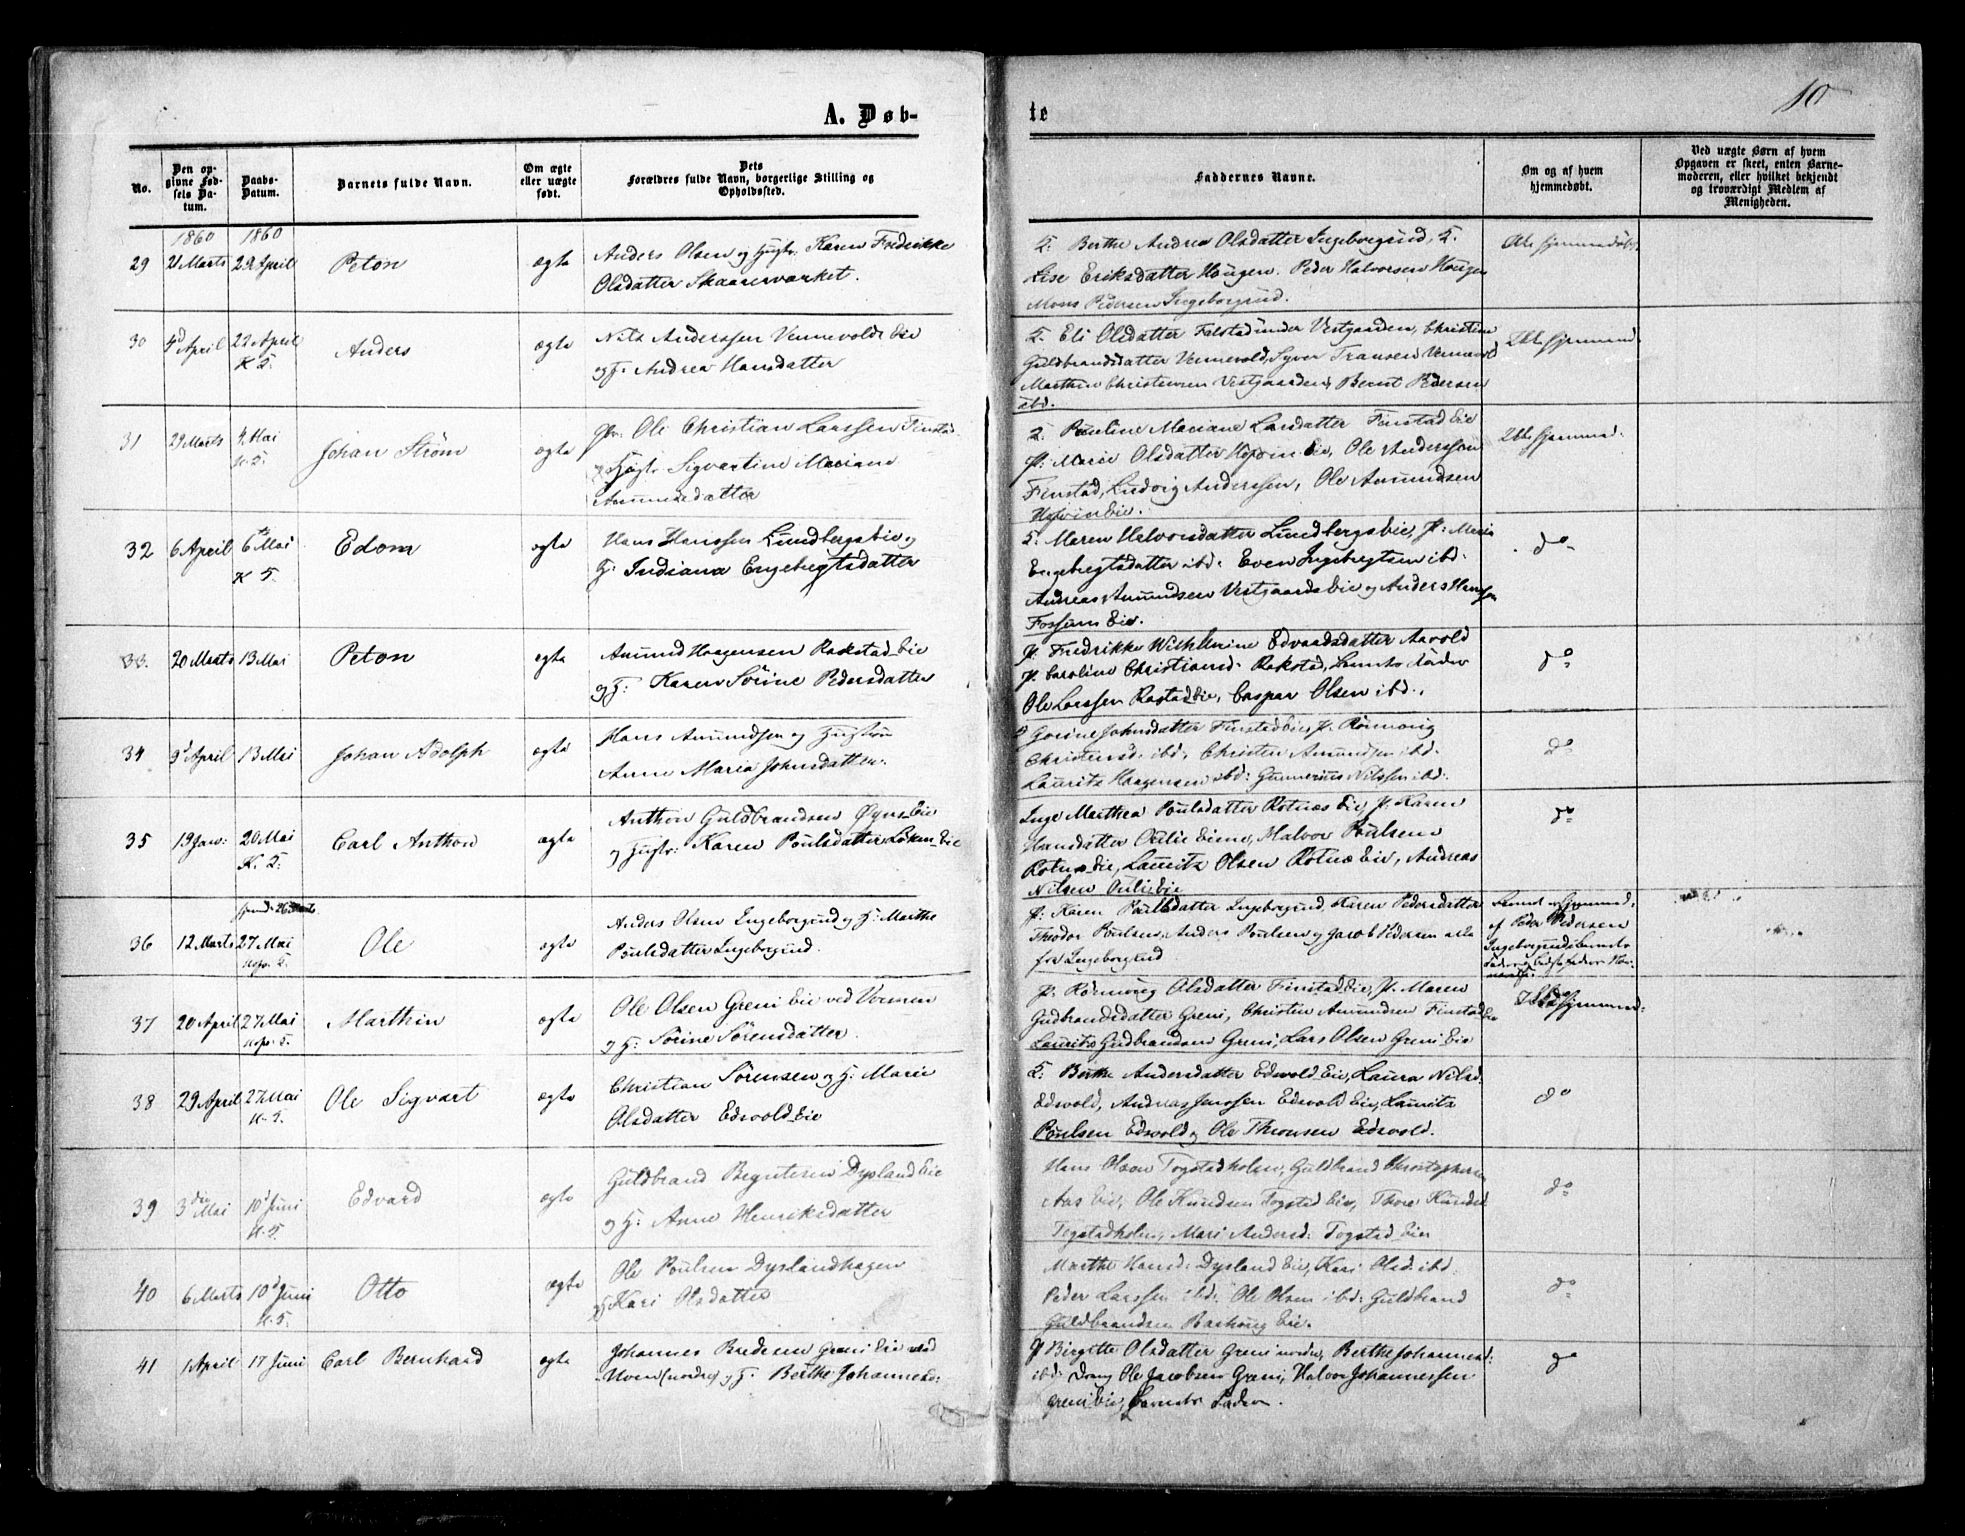 10
A. Døb-
te
No.
Den op-
givne Fød-
sels Da-
tum.
Daabs-
Datum.
Barnets fulde Navn.
Om ægte
eller uægte
født.
Dets
Forældres fulde Navn, borgerlige Stilling og
Opholdssted.
Faddernes Navne.
Om og af hvem
hjemmedøbt.
Ved uægte Børn af hvem
Opgaven er skeet, enten Barne-
moderen, eller hvilket bekjendt
og troværdigt Medlem af
Menigheden.
1860 1860
29 21 Marts 29 April Peton ægte
Anders Olsen og Hustr. Karen Fredrikke
Olsdatter Skaarervarket.
Berthe Andrea Olsdatter Ingeborgrud,
Lise Eriksdatter Hougen. Peder Halvorsen Hougen
Mons Pedersen Ingeborgrud.
30 4d April 22 April Anders ægte
Nils Anderssen Vennevolds Eie
og H. Andrea Hansdatter
Eli Olsdatter Falstad under Vestgaarden, Christine
Guldbrandsdatter Vennevold, Syver Fransen Vennevold
Marthin Christensen Vestgaarden, Bernt Pedersen
ibd.
Ikke hjemmed.
31 29 Marts Mai Johan Strøm ægte
Ole Christian Larssen Finstad
og Hustr. Sigvartine Mariane
Amundsdatter
Pauline Mariane Larsdatter Finstad Eie
P. Marie Olsdatter Hopin Eie, Ole Anderssen
Finstad, Ludvig Anderssen, Ole Amundsen
Ikke hjemmed.
32 6 April 6te Mai Edom ægte
Hans Hanssen Lundbergs Eie og
H. Indiana Engebregtsdatter
Maren Halvorsdatter Lundbergs Eie, P. Maria
Engebregtsdatter ibd. Even Ingebregtsen ibd.
Andreas Amundsen Vestgaards Eie og Anders Hanssen
Fossum Eie.
do
33. 20 Marts 13 Mai Peton ægte
Amund Haagensen Rakstad Eie
og H. Karen Sörine Pedersdatter
P. Fredrikke Wilhelmine Edvardsdatter Aarold
P. Caroline Christiansd. Rakstad, Barnets Fader
Ole Larssen Rastad Eie, Caspar Olsen ibd.
do
34 9d April 13 Mai Johan Adolph ægte
Hans Amundsen og Hustru
Anne Maria Johnsdatter.
Gorine Johnsdatter Finstad Eie, P. Rönnoug
Christensd. ibd. Christen Amundsen ibd.
Lauritz Haagensen ibd. Gunnerius Nilssen ibd.
do
35 19 Jan: 20 Mai Carl Anthon ægte
Anthon Guldbrandsen Øyns Eie
og Hustr: Karen Poulsdatter Löken Eie
Inge Marthea Poulsdatter Rotnæs Eie, P. Karen
Hansdatter Eie, Halvor Poulsen
Rotnæs Eie, Lauritz Olsen Rotnæs Eie, Andreas
Nilsen Eie
do
36 12 Marts 27 Mai Ole ægte
Anders Olsen Ingeborgrud og H: Marthe
Poulsdatter Ingeborgrud.
P. Karen Poulsdatter Ingeborgrud, Karen Pedersdatter
Theodor Poulsen, Anders Poulsen og Jacob Pedersen alle
fra Ingeborgrud
af Peder Pedersen
Ingeborgrud
37 20 April 27 Mai Marthin ægte
Ole Olsen Greni Eie ved Vormen
og H: Sörine Sörensdatter.
P. Rönnoug Olsdatter Finstad Eie, P. Maren
Gudbrandsdatter Greni, Christen Amundsen Finstad Eie
Lauritz Gudbrandsen Greni, Lars Olsen Greni Eie
Ikke hjemmed.
38 29 April 27 Mai Ole Sigvart ægte
Christian Sörensen og H: Marie
Olsdatter Edsvold Eie
Berthe Andersdatter Edsvold Eie, Laura Nilsd.
Edsvold, Andreas Jenssen Edsvold Eie, Lauritz
Poulsen Edsvold og Ole Thronsen Edsvold.
do
39 3die Mai 10d Juni Edvard ægte
Guldbrand Dysland Eie
og H: Anne Henriksdatter
Hans Olsen Togstadholm, Guldbrand Christophersen
Aas Eie, Ole Knudsen Togstad Eie, Thore Knudsen
Togstadholm, Mari Andersd: Togstad Eie
do
40 6 Marts 10d Juni Otto ægte
Ole Poulsen Dyslandhagen
og H Kari Olsdatter
Marthe Hansd: Dysland Eie, Kari Olsd. ibd.
Peder Larssen ibd. Ole Olsen ibd: Guldbrand
Guldbrandsen Eie.
do
41 1 April 17 Juni Carl Bernhard ægte
Johannes Bredesen Greni Eie ved
Moen (nordre) og H. Berthe Johannesd:
P Birgitte Olsdatter Greni nordre, Berthe Johannesd:
ibd. Ole Jacobsen Greni, Halvor Johannessen
Greni Eie, Barnets Fader.
do